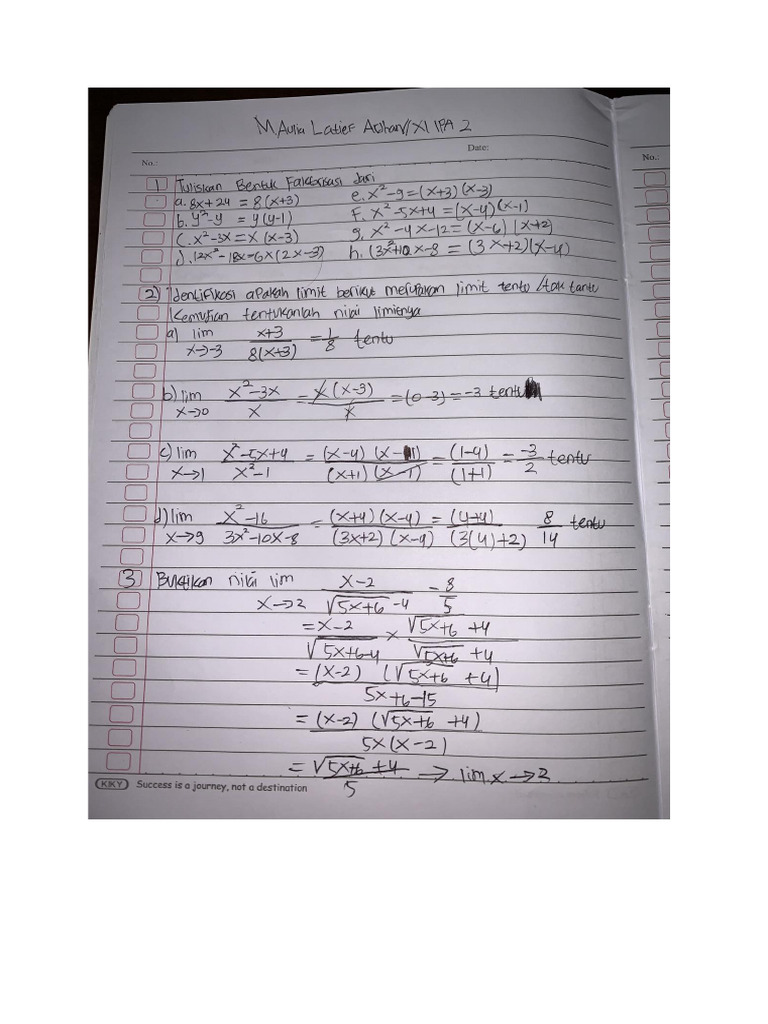 M Aulia Latief Adhan/XI IPA 2
No.:
Date:
No.:
1 Tuliskan Bentuk Faktorisasi dari
a. 8x + 24 = 8(x+3)
b. y²-y = y(y-1)
c. x²-3x = x(x-3)
d. 12x² - 18x = 6x(2x-3)
e. x²-9 = (x+3)(x-3)
f. x²-5x+4 = (x-4)(x-1)
g. x²-4x-12 = (x-6)(x+2)
h. (3x²+10x-8 = (3x+2)(x-4)
2) Identifikasi apakah limit berikut merupakan limit tentu/tak tantu
Kemudian tentukanlah nilai limitnya
a) lim x→-3 x+3 / 8(x+3) = 1/8 tentu
b) lim x→0 x²-3x / x = x(x-3) / x = (0-3) = -3 tentu
c) lim x→1 x²-5x+4 / x²-1 = (x-4)(x-1) / (x+1)(x-1) = (1-4) / (1+1) = -3/2 tentu
d) lim x→9 x²-16 / 3x²-10x-8 = (x+4)(x-4) / (3x+2)(x-4) = (4+4) / (3(4)+2) 8/14 tentu
3 Buktikan nilai lim x→2 x-2 / √5x+6 -4 = 8/5
= x-2 / √5x+6-4 × √5x+6 +4 / √5x+6 +4
= (x-2) (√5x+6 +4) / 5x+6-15
= (x-2) (√5x+6 +4) / 5x(x-2)
= √5x+6 +4 / 5 → lim x→2
KIKY Success is a journey, not a destination